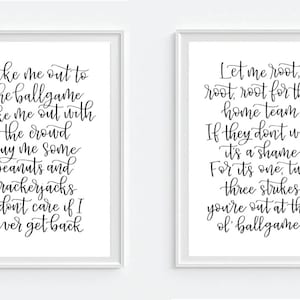 ke me out to
he ballgame
ke me out with
the crowd
uy me some
peanuts and
rackerjacks
dont care if I
ver get back
Let me root,
root, root for th
home team
If they don't w
it's a shame
For it's one, tw
three strikes
you're out at th
ol' ballgame